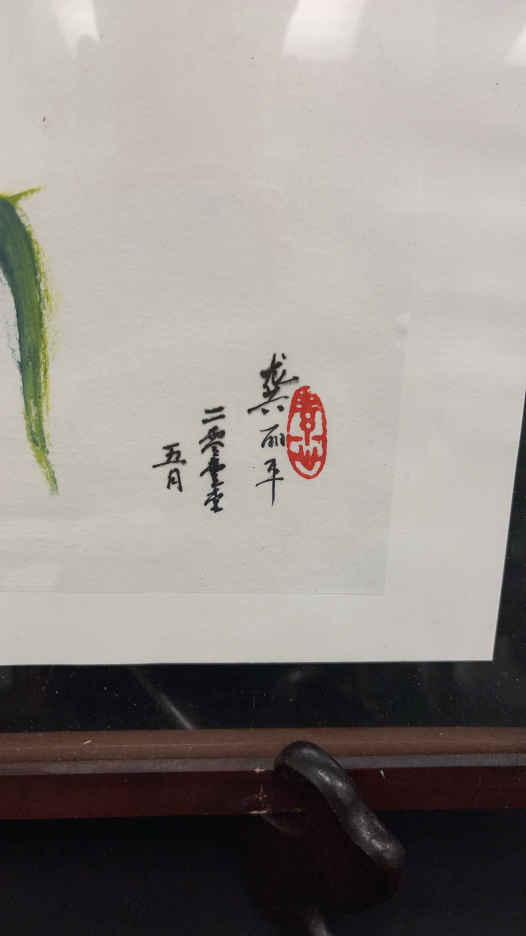 龚丽平
二零零
五月